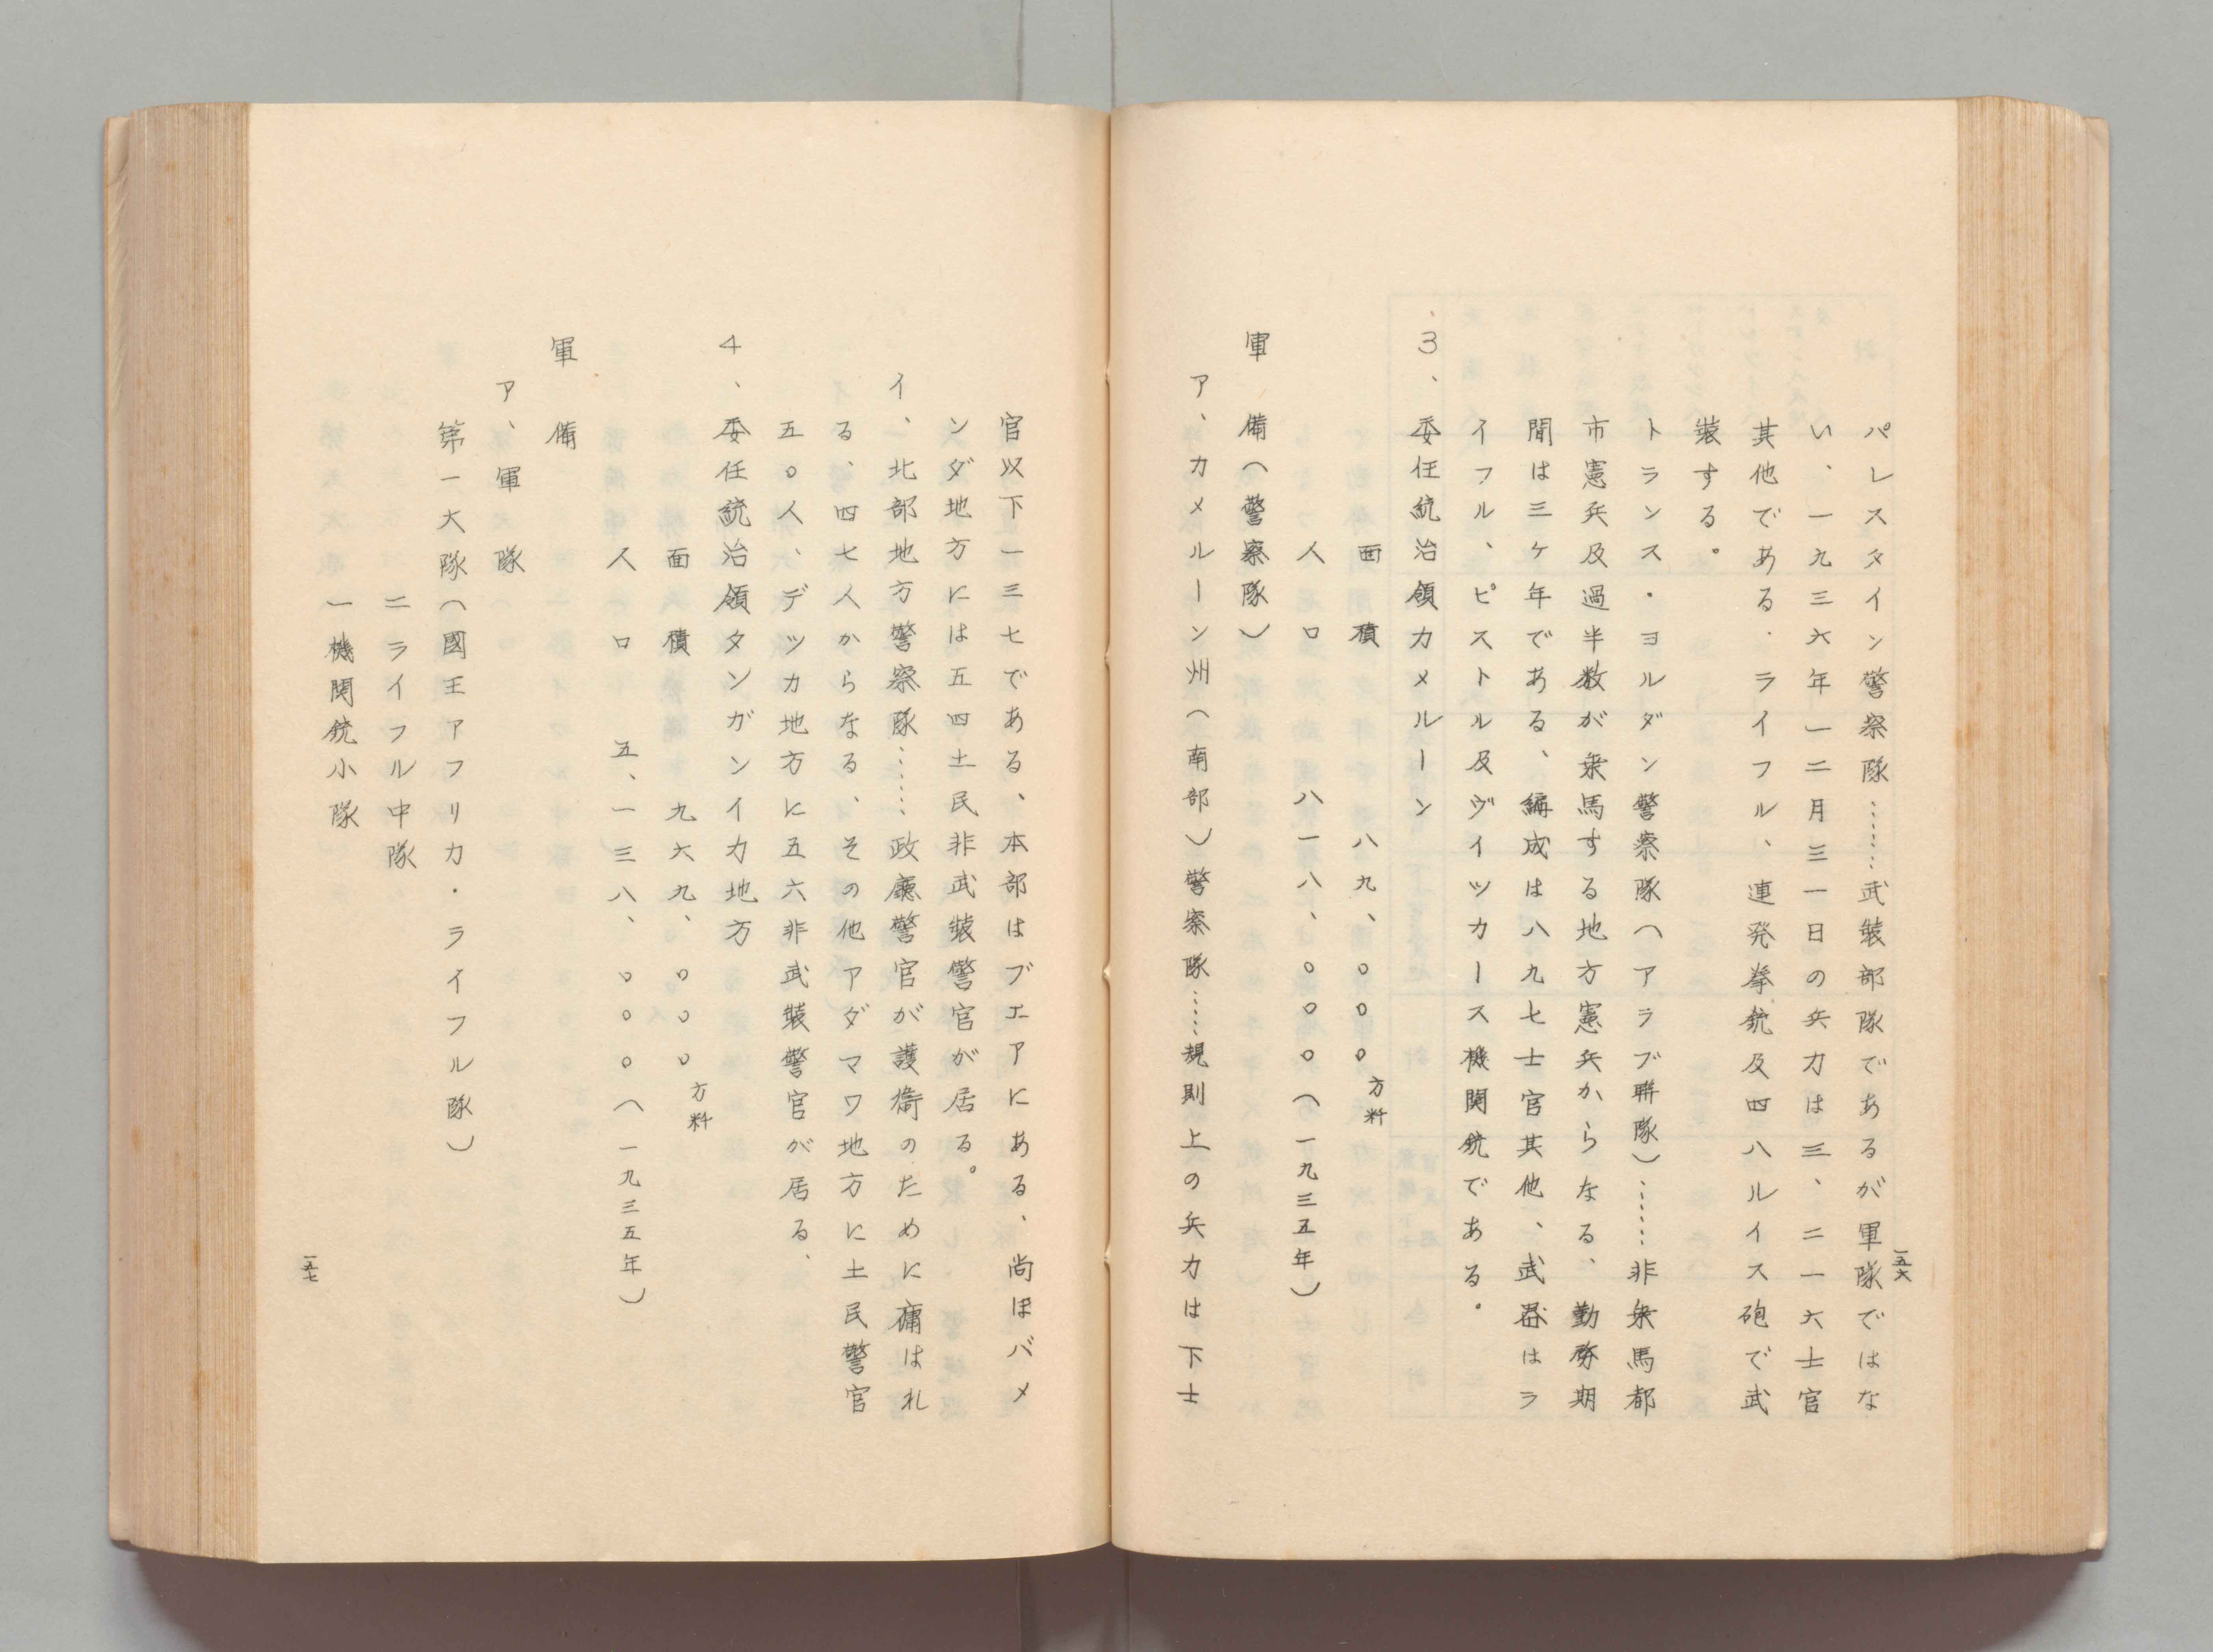 一五六
パレスタイン警察隊……武装部隊であるが軍隊ではな
い、一九三六年一二月三一日の兵力は三、二一六士官
其他である．ライフル、連発拳銃及四八ルイス砲で武
装する。
トランス・ヨルダン警察隊（アラブ聯隊）……非乗馬都
市憲兵及過半数が乗馬する地方憲兵からなる、勤務期
間は三ヶ年である、編成は八九七士官其他、武器はラ
イフル、ピストル及ヴイツカース機関銃である。
3、委任統治領カメルーン
面積　八九、〇〇〇方粁
人口　八一八、〇〇〇（一九三五年）
軍備（警察隊）
ア、カメルーン州（南部）警察隊……規則上の兵力は下士
官以下一三七である、本部はブエアにある、尚ほバメ
ンダ地方には五四土民非武装警官が居る。
イ、北部地方警察隊……政廳警官が護衛のために傭はれ
る、四七人からなる、その他アダマワ地方に土民警官
五〇人、デツカ地方に五六非武装警官が居る、
4、委任統治領タンガンイカ地方
面積　九六九、〇〇〇方粁
人口　五、一三八、〇〇〇（一九三五年）
軍備
ア、軍隊
第一大隊（國王アフリカ・ライフル隊）
二ライフル中隊
一機関銃小隊
一五七